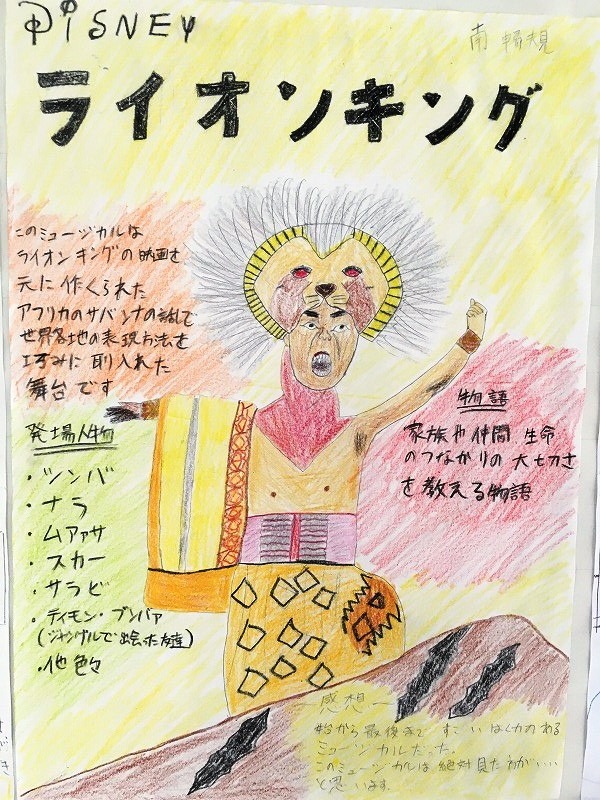 DiSNEY
南
ライオンキング
このミュージカルは
ライオンキングの映画を
元に作くられた
アフリカのサバンナの話で
世界各地の表現方法を
巧みに取り入れた
舞台です
発場人物
・シンバ
・ナラ
・ムファサ
・スカー
・サラビ
・ティモン・プンバァ
(ジャングルで出会った友達)
・他色々
物語
家族や仲間 生命
のつながりの大切さ
を教える物語
ー感想ー
始から最後まで すごいはく力のある
ミュージカルだった。
このミュージカルは絶対見た方がいい
と思います。